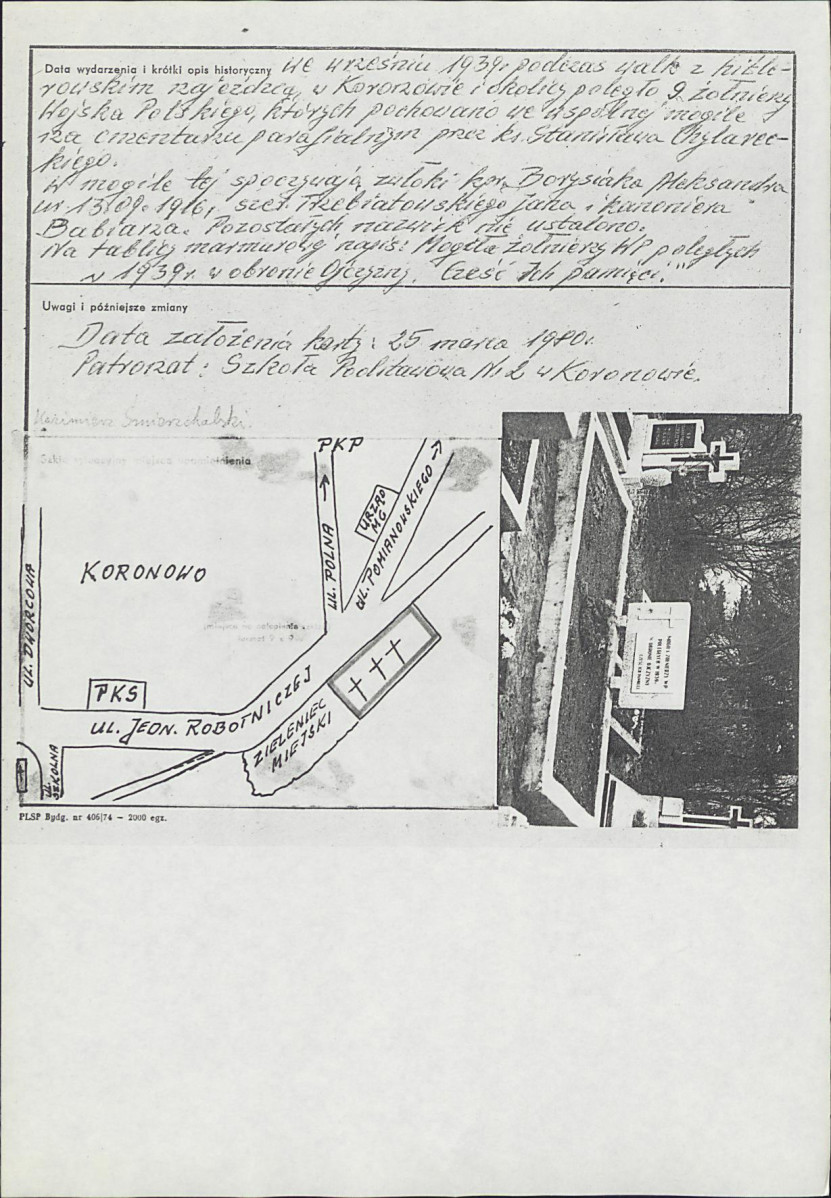 Data wydarzenia i krótki opis historyczny We wrześniu 1939r podczas walk z hitle-
rowskim najeźdźcą w Koronowie i okolicy poległo 9 żołnierzy
Wojska Polskiego, których pochowano we wspólnej mogile
na cmentarzu parafialnym przez ks. Stanisława Chylarec-
kiego.
W mogile tej spoczywają zwłoki kpr. Borysiaka Aleksandra
ur 13.09.1916, szer. Trzebiatowskiego Jana i kanoniera
Babiarza. Pozostałych nazwisk nie ustalono.
Na tablicy marmurowej napis: Mogiła żołnierzy WP poległych
w 1939r. w obronie Ojczyzny. Cześć Ich pamięci."
Uwagi i późniejsze zmiany
Data założenia karty: 25 marca 1980r.
Patronat: Szkoła Podstawowa Nr 2 w Koronowie.
Kazimierz
PKP
URZĄD
MG
UL. POLNA
UL. POMIANOWSKIEGO
KORONOWO
UL. DWORCOWA
PKS
UL. JEDN. ROBOTNICZEJ
ZIELENIEC
MIEJSKI
UL. SZKOLNA
PLSP Bydg. nr 406|74 — 2000 egz.